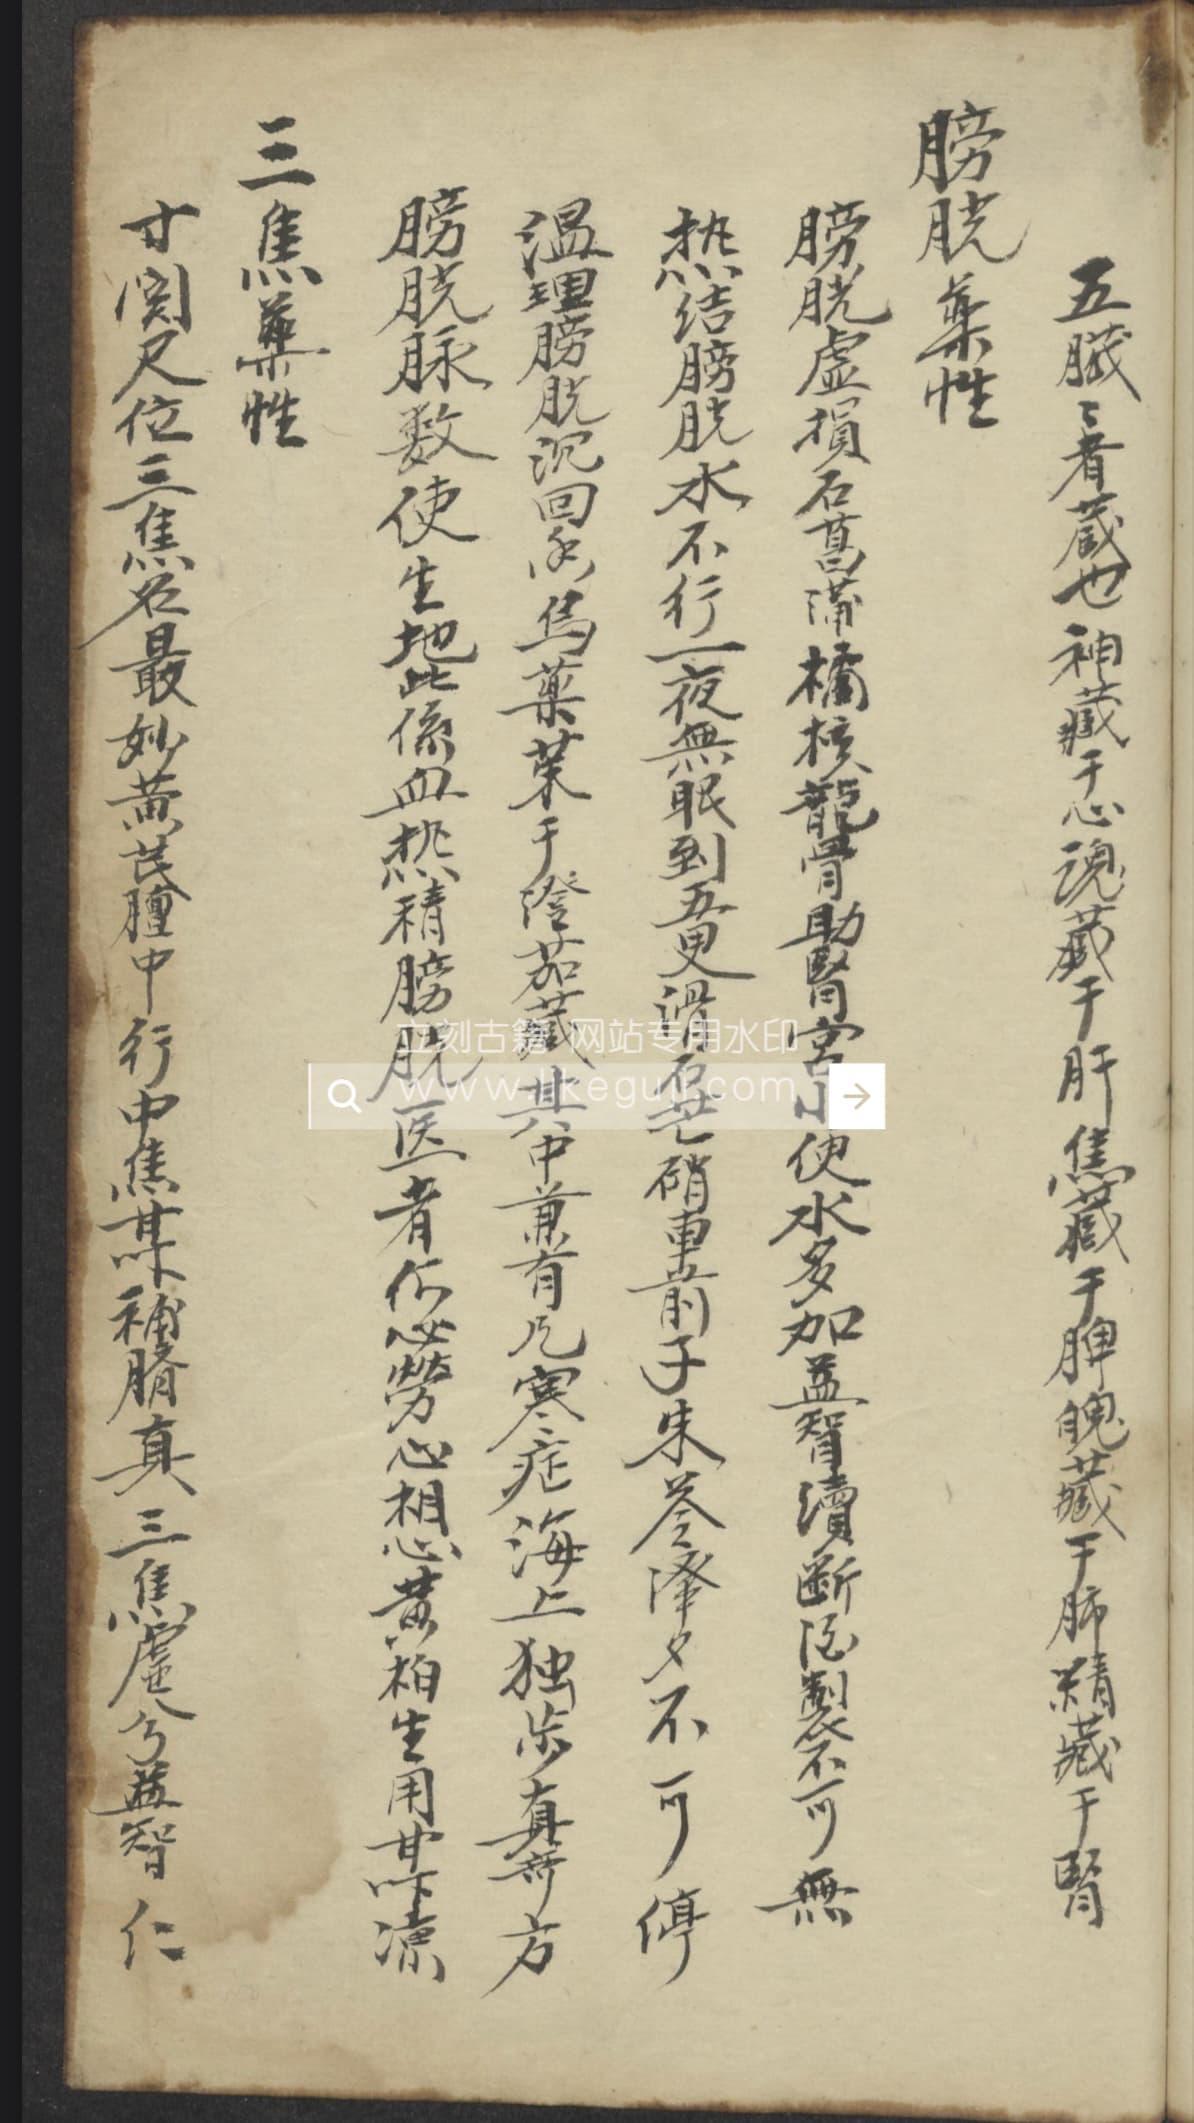 五臟〻者藏也神藏于心魂藏于肝焦藏于脾魄藏于肺精藏于腎
膀胱藥性
膀胱虛損石菖蒲橘核龍骨助腎宮小便水多加益智續斷酒製不可無
热结膀胱水不行一夜無眠到五更滑石芒硝車前子朱苓泽夕不可停
温理膀胱沉回香烏藥茱于澄茄藏其中兼有凡寒症海上独步真奇方
膀胱脉数使生地此係血热積膀胱医者何必勞心想黄柏生用甘草凉
三焦藥性
寸関尺位三焦名最妙黄芪膻中行中焦某补脐真三焦虛兮益智仁
立刻古籍 网站专用水印